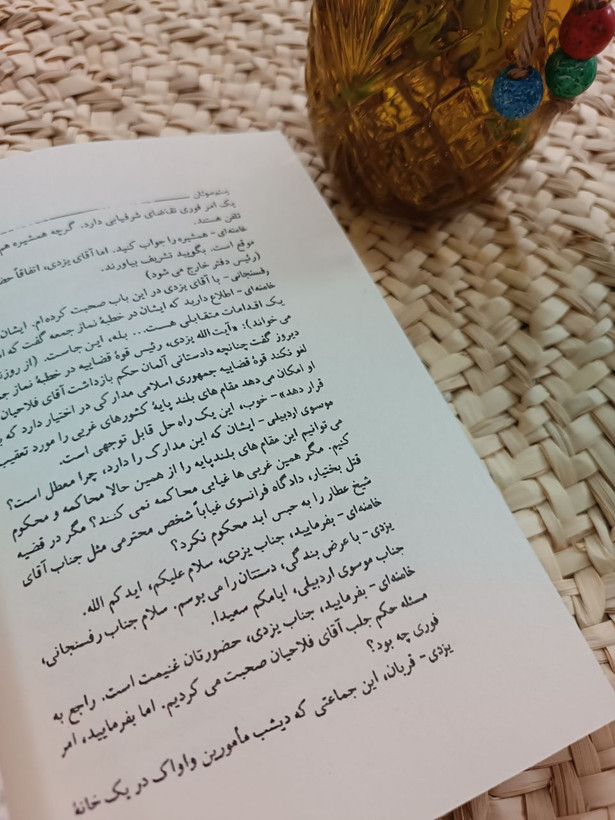 یک امر فوری تقاضای شرفیابی دارد. گرچه همشیره هم
تلفن هستند.
خامنه‌ای - همشیره را جواب کنید. اما آقای یزدی، اتفاقاً
موقع است. بگویید تشریف بیاورند.
(رئیس دفتر خارج می شود)
رفسنجانی - با آقای یزدی در این باب صحبت کرده‌ام. ایشان
خامنه‌ای - اطلاع دارید که ایشان در خطبۀ نماز جمعه گفت که
یک اقدامات متقابلی هست... بله، این جاست. (از
می خواند): «آیت الله یزدی، رئیس قوۀ قضاییه در خطبۀ نماز
دیروز گفت چنانچه دادستانی آلمان حکم بازداشت آقای فلاحیان
لغو نکند قوۀ قضاییه جمهوری اسلامی مدارکی در اختیار دارد که
او امکان می دهد مقام های بلند پایۀ کشورهای غربی را مورد تعقیب
قرار دهد» - خوب، این یک راه حل قابل توجهی است.
موسوی اردبیلی - ایشان که این مدارک را دارد، چرا معطل است؟
می توانیم این مقام های بلندپایه را از همین حالا محاکمه و محکوم
کنیم. مگر همین غربی ها غیابی محاکمه نمی کنند؟ مگر در قضیه
قتل بختیار، دادگاه فرانسوی غیاباً شخص محترمی مثل جناب آقای
شیخ عطار را به حبس ابد محکوم نکرد؟
خامنه‌ای - بفرمایید، جناب یزدی، سلام علیکم، اید کم الله.
یزدی - با عرض بندگی، دستتان را می بوسم. سلام جناب رفسنجانی،
جناب موسوی اردبیلی، ایامکم سعیدا.
خامنه‌ای - بفرمایید، جناب یزدی، حضورتان غنیمت است. راجع به
مسئله حکم جلب آقای فلاحیان صحبت می کردیم. اما بفرمایید، امر
فوری چه بود؟
یزدی - قربان، این جماعتی که دیشب مأمورین واواک در یک خانۀ